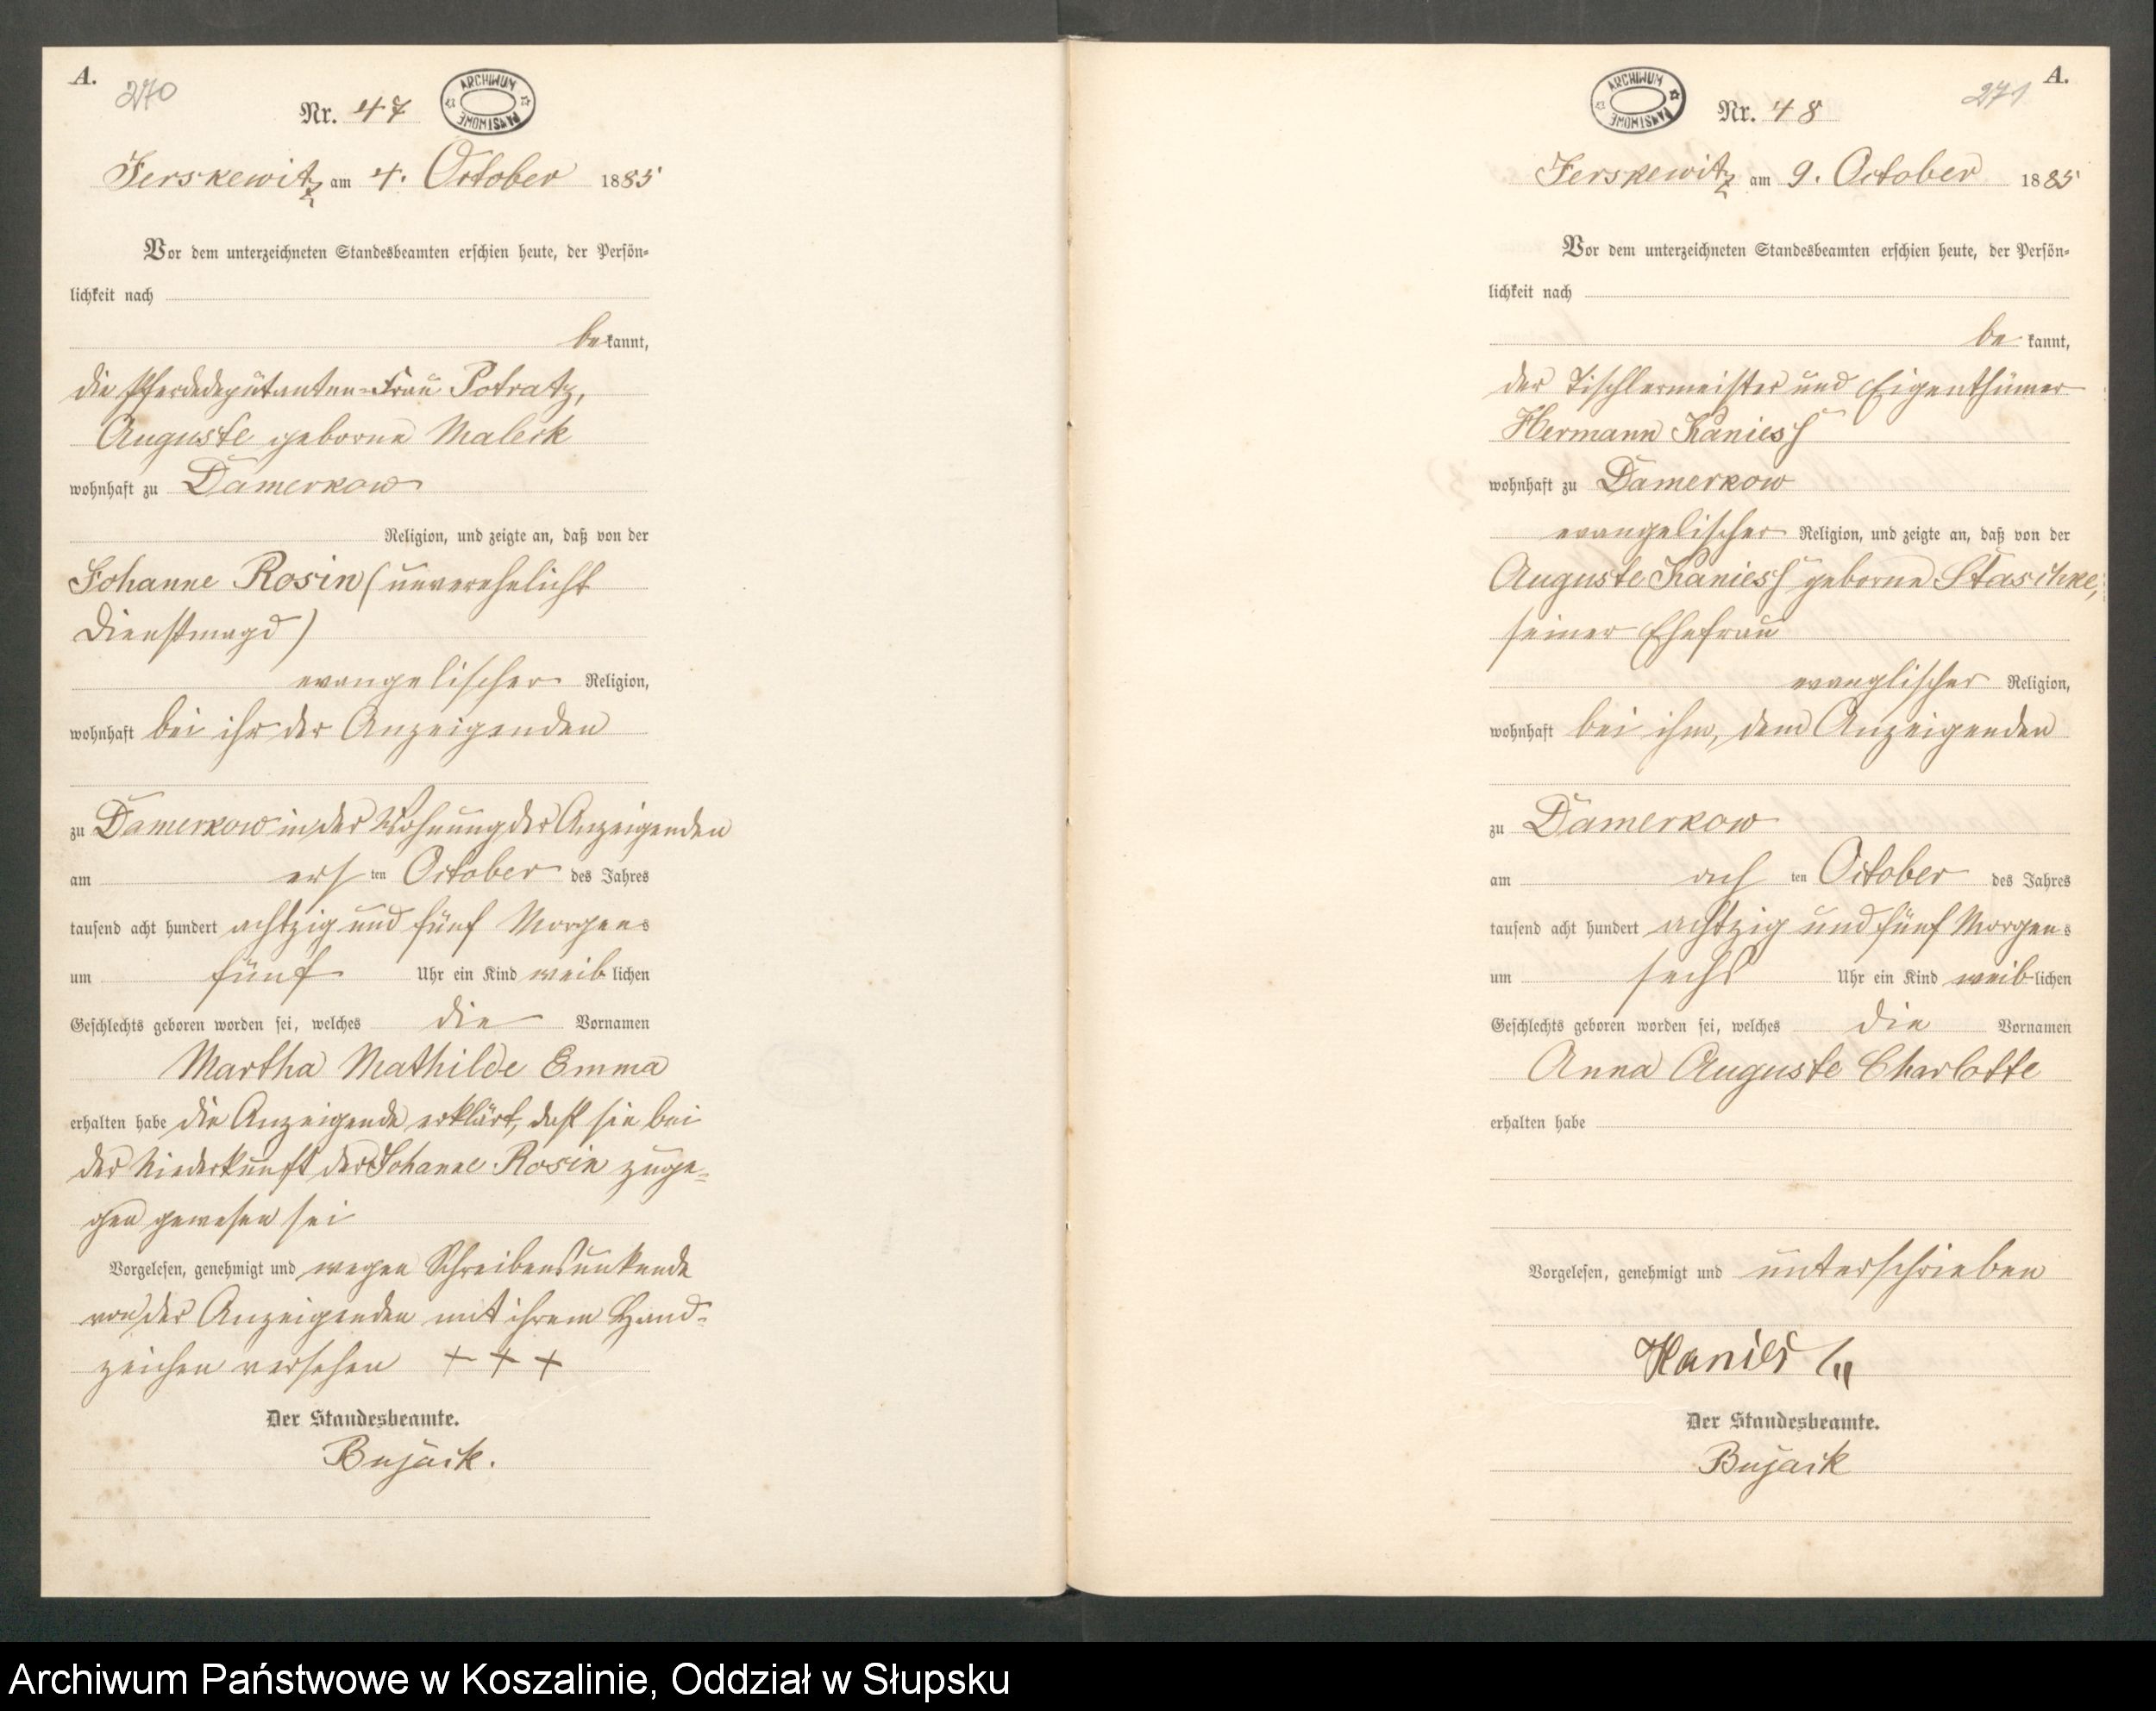 A.
270
Nr. 47
ARCHIWUM PAŃSTWOWE
Jerskewitz am 4. October 1885
Vor dem unterzeichneten Standesbeamten erschien heute, der Persön-
lichkeit nach
bekannt,
die Pferdedeputanten-Frau Potratz,
Auguste geborne Maleck
wohnhaft zu Damerkow
Religion, und zeigte an, daß von der
Johanne Rosin (unverehelicht
Dienstmagd)
evangelischer Religion,
wohnhaft bei ihr der Anzeigenden
zu Damerkow in der Wohnung der Anzeigenden
am ersten October des Jahres
tausend acht hundert achtzig und fünf Morgens
um fünf Uhr ein Kind weiblichen
Geschlechts geboren worden sei, welches die Vornamen
Martha Mathilde Emma
erhalten habe die Anzeigende erklärt, daß sie bei
der Niederkunft der Johanne Rosin zuge-
gen gewesen sei
Vorgelesen, genehmigt und wegen Schreibensunkunde
von der Anzeigenden mit ihrem Hand-
zeichen versehen + + +
Der Standesbeamte.
Bujack.
A.
271
Nr. 48
ARCHIWUM PAŃSTWOWE
Jerskewitz am 9. October 1885
Vor dem unterzeichneten Standesbeamten erschien heute, der Persön-
lichkeit nach
bekannt,
der Tischlermeister und Eigenthümer
Hermann Kaniess
wohnhaft zu Damerkow
evangelischer Religion, und zeigte an, daß von der
Auguste Kaniess geborne Staschke,
seiner Ehefrau
evanglischer Religion,
wohnhaft bei ihm, dem Anzeigenden
zu Damerkow
am achten October des Jahres
tausend acht hundert achtzig und fünf Morgens
um sechs Uhr ein Kind weiblichen
Geschlechts geboren worden sei, welches die Vornamen
Anna Auguste Charlotte
erhalten habe
Vorgelesen, genehmigt und unterschrieben
Kanies
Der Standesbeamte.
Bujack
Archiwum Państwowe w Koszalinie, Oddział w Słupsku